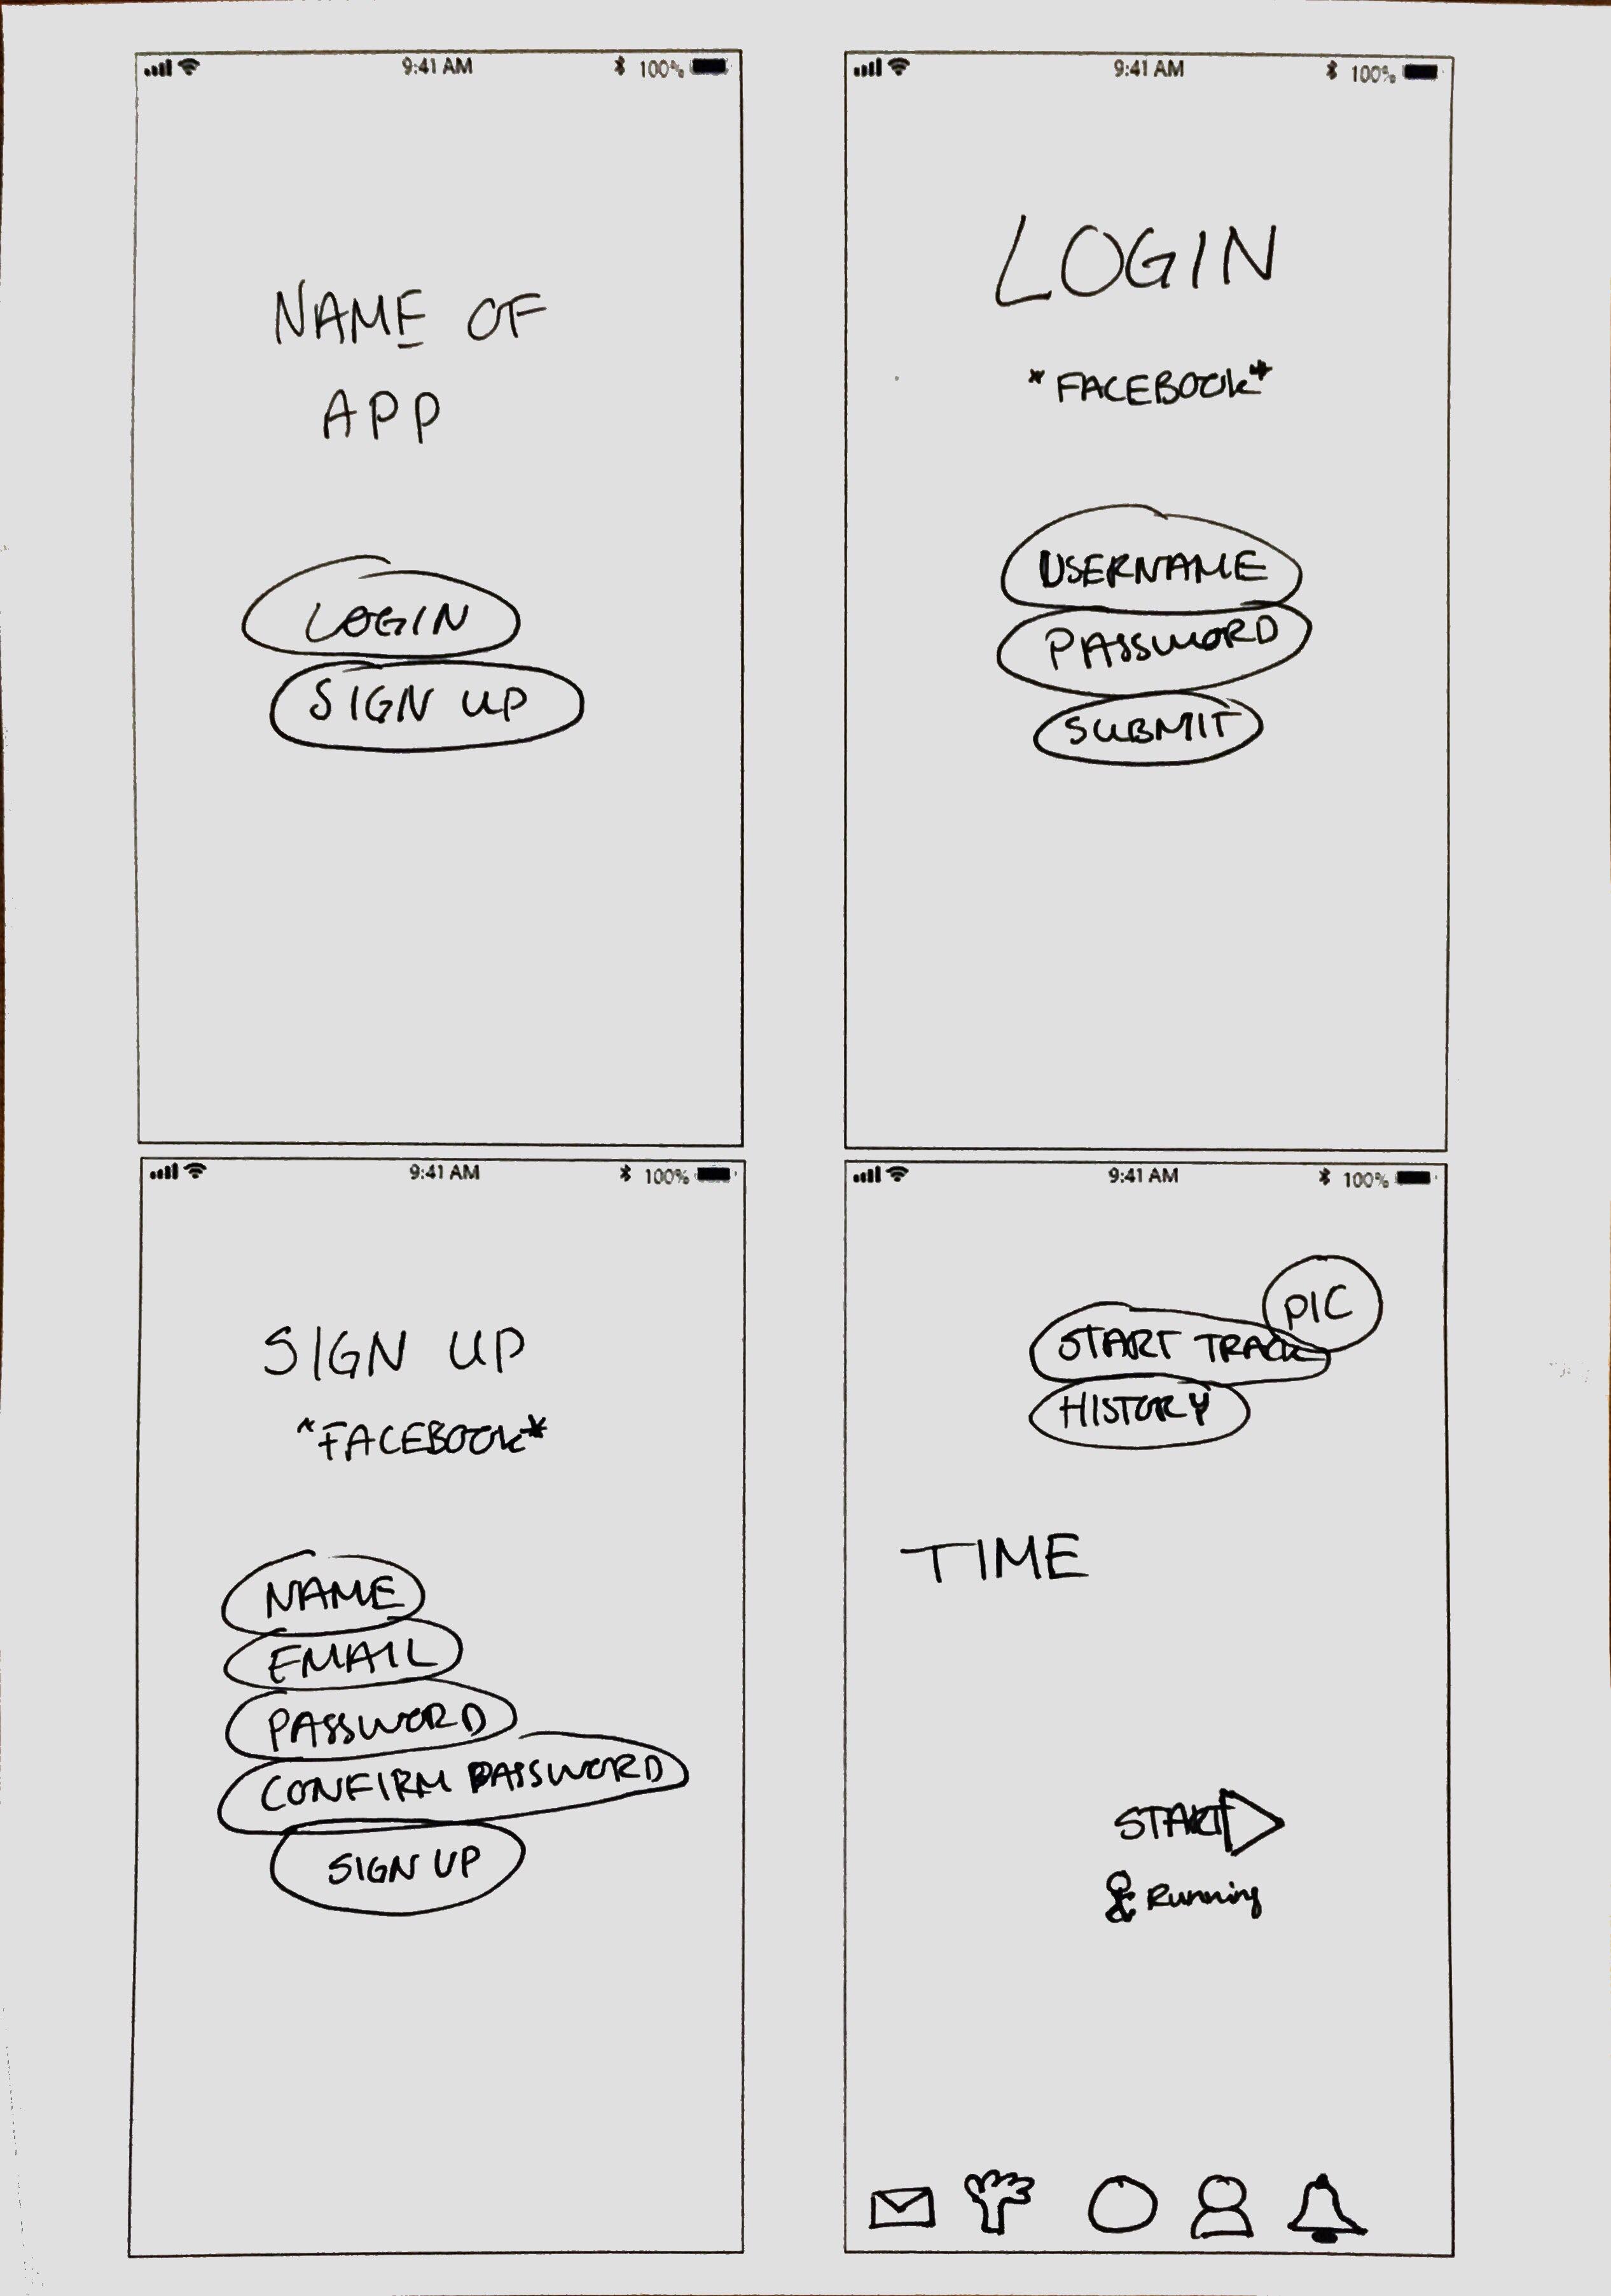 9:41 AM 100%
NAME OF
APP
LOGIN
SIGN UP
9:41 AM 100%
LOGIN
*FACEBOOK*
USERNAME
PASSWORD
SUBMIT
9:41 AM 100%
SIGN UP
*FACEBOOK*
NAME
EMAIL
PASSWORD
CONFIRM PASSWORD
SIGN UP
9:41 AM 100%
PIC
START TRACK
HISTORY
TIME
START
Running